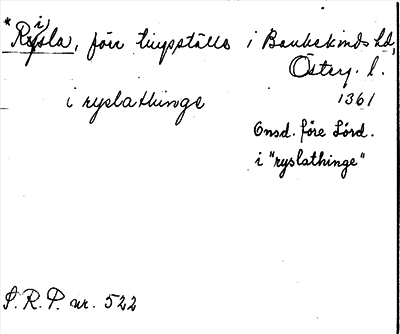 *Rysla, förr tingställe i Bankekinds hd,
i
Österg. l.
i ryslathinge
1361
Onsd. före Lörd.
i "ryslathinge"
S.R.P. nr. 522